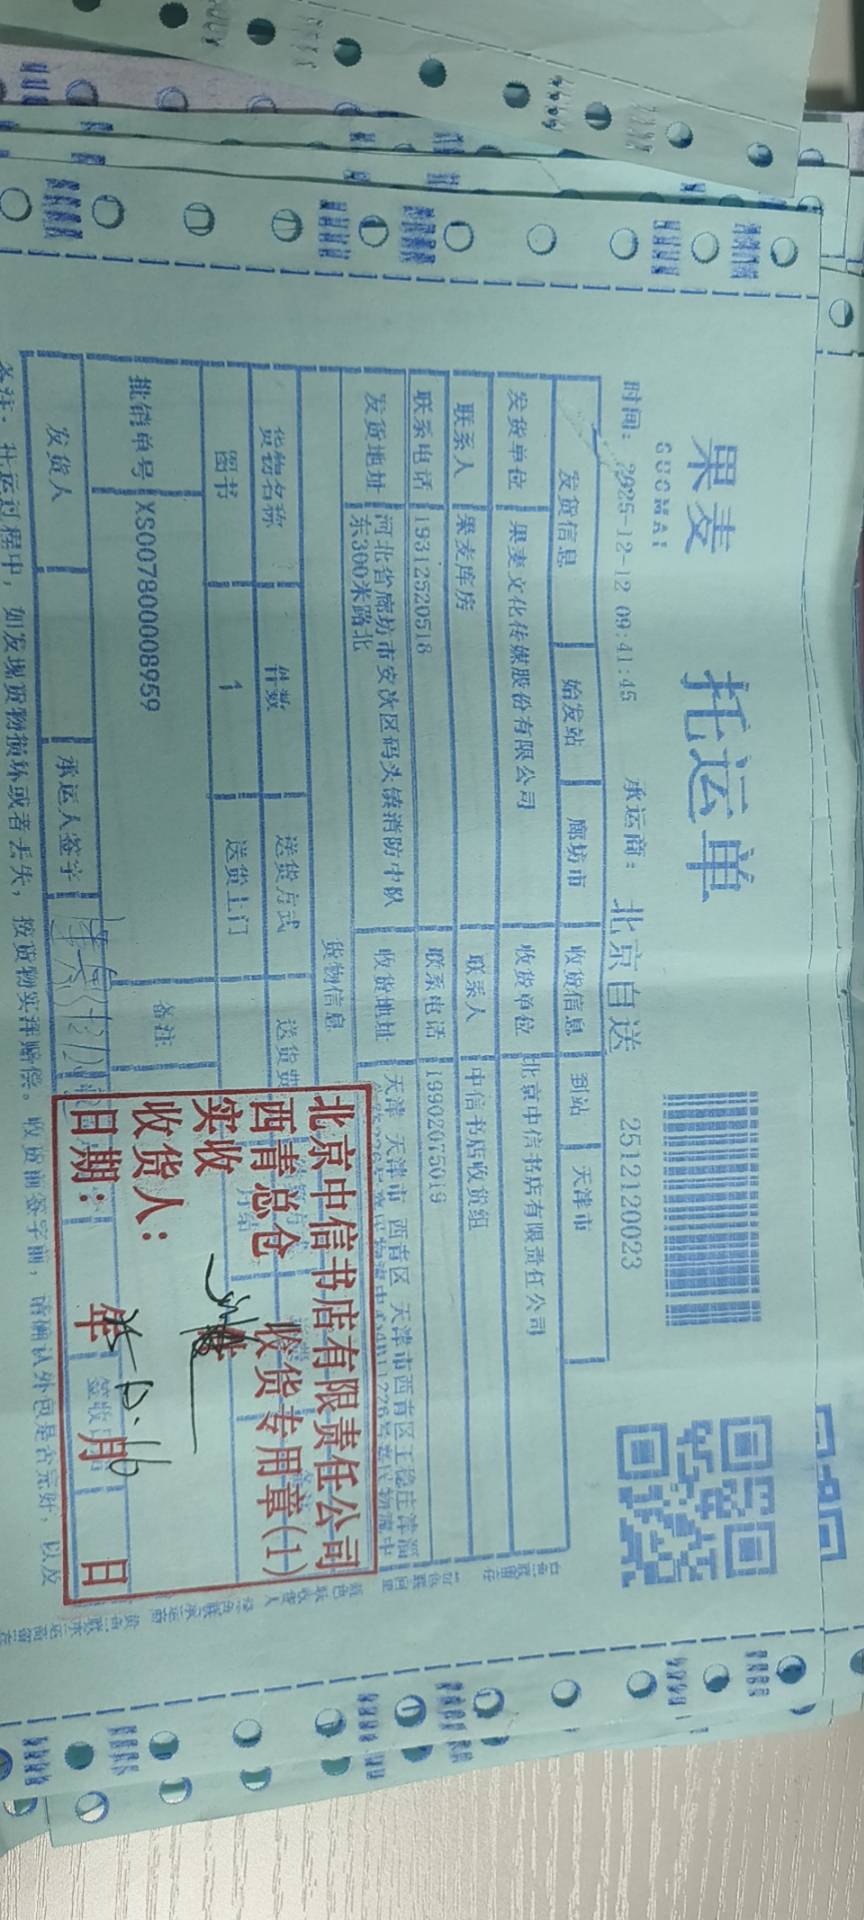 果麦
GUOMAI
托运单
时间：2025-12-12 09:41:45
承运商：北京自送
2512120023
发货信息 始发站 廊坊市 收货信息 到站 天津市
发货单位 果麦文化传媒股份有限公司 收货单位 北京中信书店有限责任公司
联系人 果麦库房 联系人 中信书店收货组
联系电话 19312520518 联系电话 19902075019
发货地址 河北省廊坊市安次区码头镇消防中队东300米路北 收货地址 天津 天津市 西青区 天津市西青区王稳庄津淄
货物信息
货物名称 件数 送货方式 送货费
图书 1 送货上门
批销单号 XS007800008959 备注
发货人 承运人签字
备注：托运过程中，如发现货物损坏或者丢失，按货物实洋赔偿。收货前签字前，请确认外包是否完好，以及
北京中信书店有限责任公司
西青总仓 收货专用章(1)
实收
收货人：
日期： 年 月 日